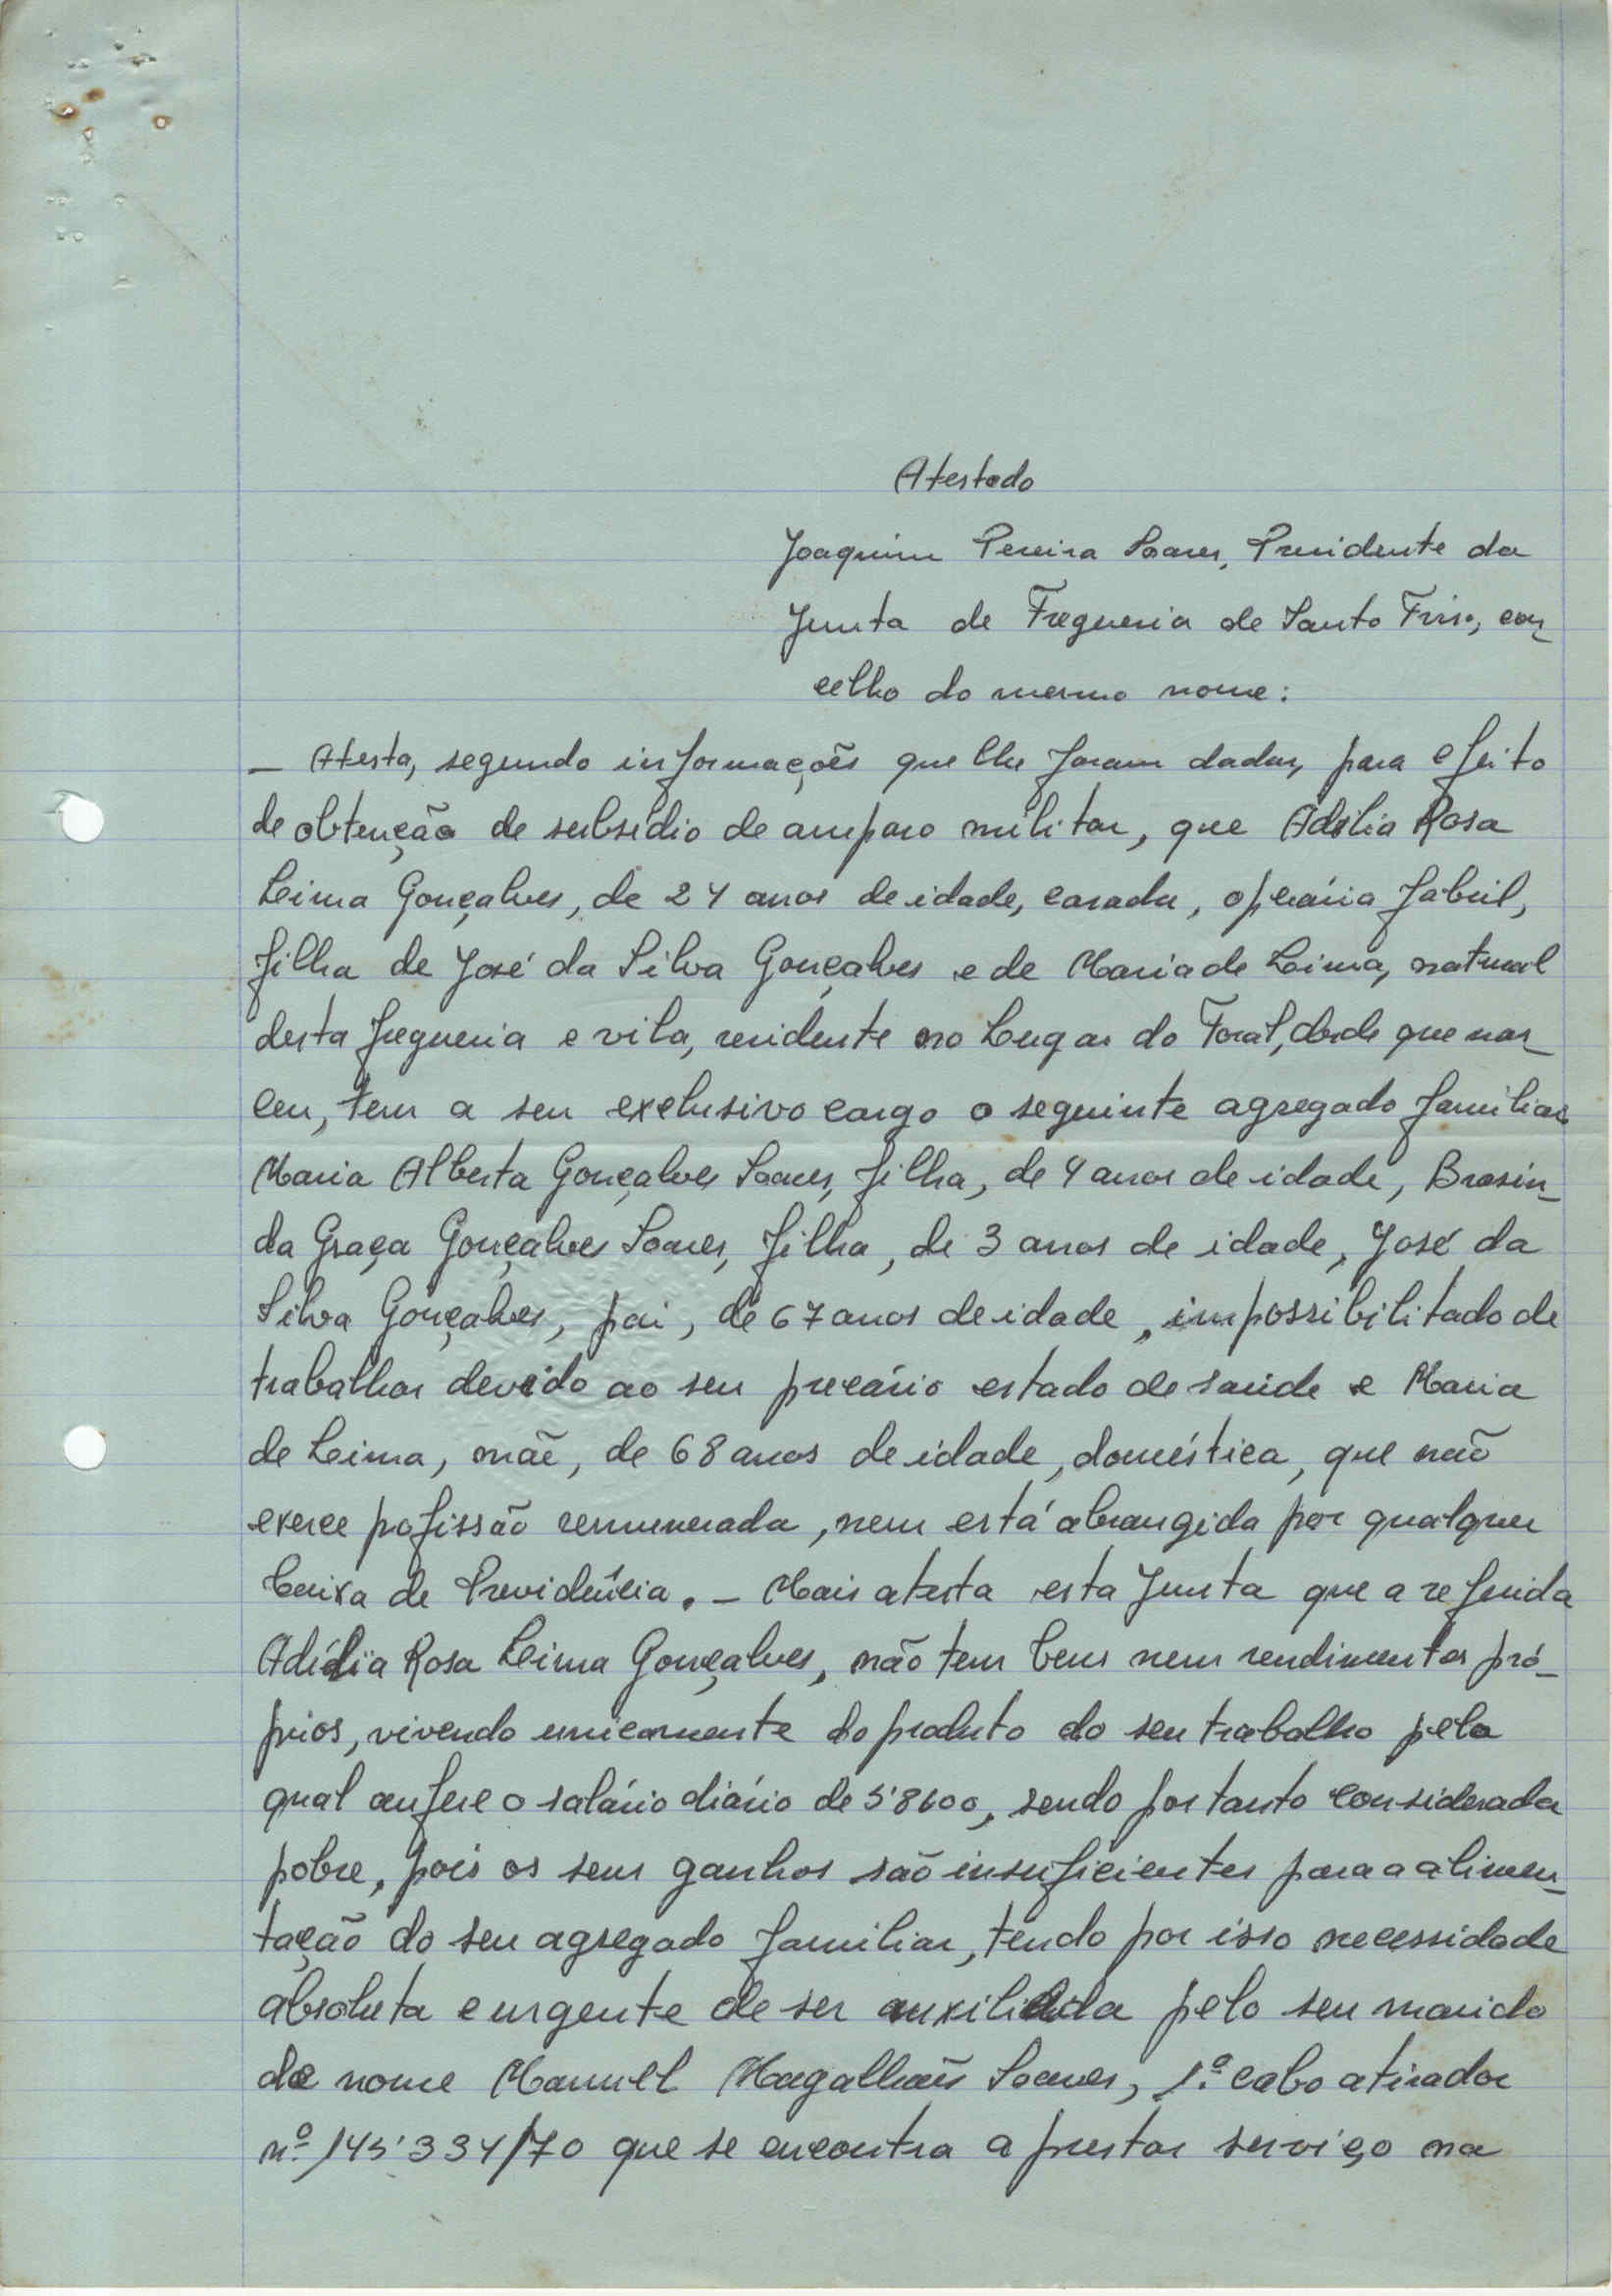 Atestado
Joaquim Pereira Soares, Presidente da
Junta de Freguesia de Santo Tirso, con_
celho do mesmo nome:
_ Atesta, segundo informações que lhe foram dadas, para efeito
de obtenção de subsídio de amparo militar, que Adília Rosa
Leima Gonçalves, de 24 anos de idade, casada, operária fabril,
filha de José da Silva Gonçalves e de Maria de Leima, natural
desta freguesia e vila, residente no Lugar do Toral, desde que nas_
ceu, tem a seu exclusivo cargo o seguinte agregado familiar
Maria Alberta Gonçalves Soares, filha, de 4 anos de idade, Brasin_
da Graça Gonçalves Soares, filha, de 3 anos de idade, José da
Silva Gonçalves, pai, de 67 anos de idade, impossibilitado de
trabalhar devido ao seu precário estado de saúde e Maria
de Leima, mãe, de 68 anos de idade, doméstica, que não
exerce profissão remunerada, nem está abrangida por qualquer
Caixa de Previdência. _ Mais atesta esta Junta que a referida
Adília Rosa Leima Gonçalves, não tem bens nem rendimentos pró_
prios, vivendo unicamente do produto do seu trabalho pelo
qual aufere o salário diário de sendo portanto considerada
pobre, pois os seus ganhos são insuficientes para a alimen_
tação do seu agregado familiar, tendo por isso necessidade
absoluta e urgente de ser auxiliada pelo seu marido
de nome Manuel Magalhães Soares, 1.º cabo atirador
n.º 145'334/70 que se encontra a prestar serviço na